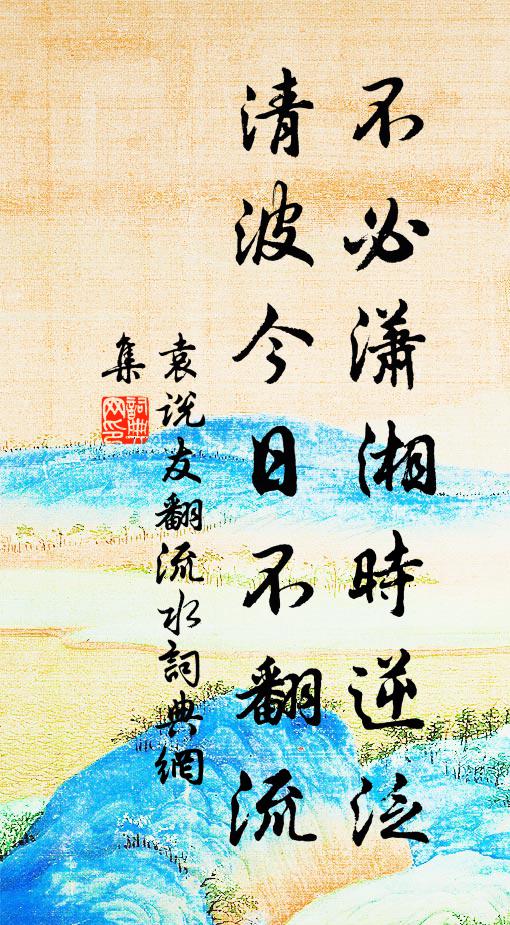 不必瀟湘時逆泛
清波今日不翻流
袁説友翻流水詞典網
集
詞典網印